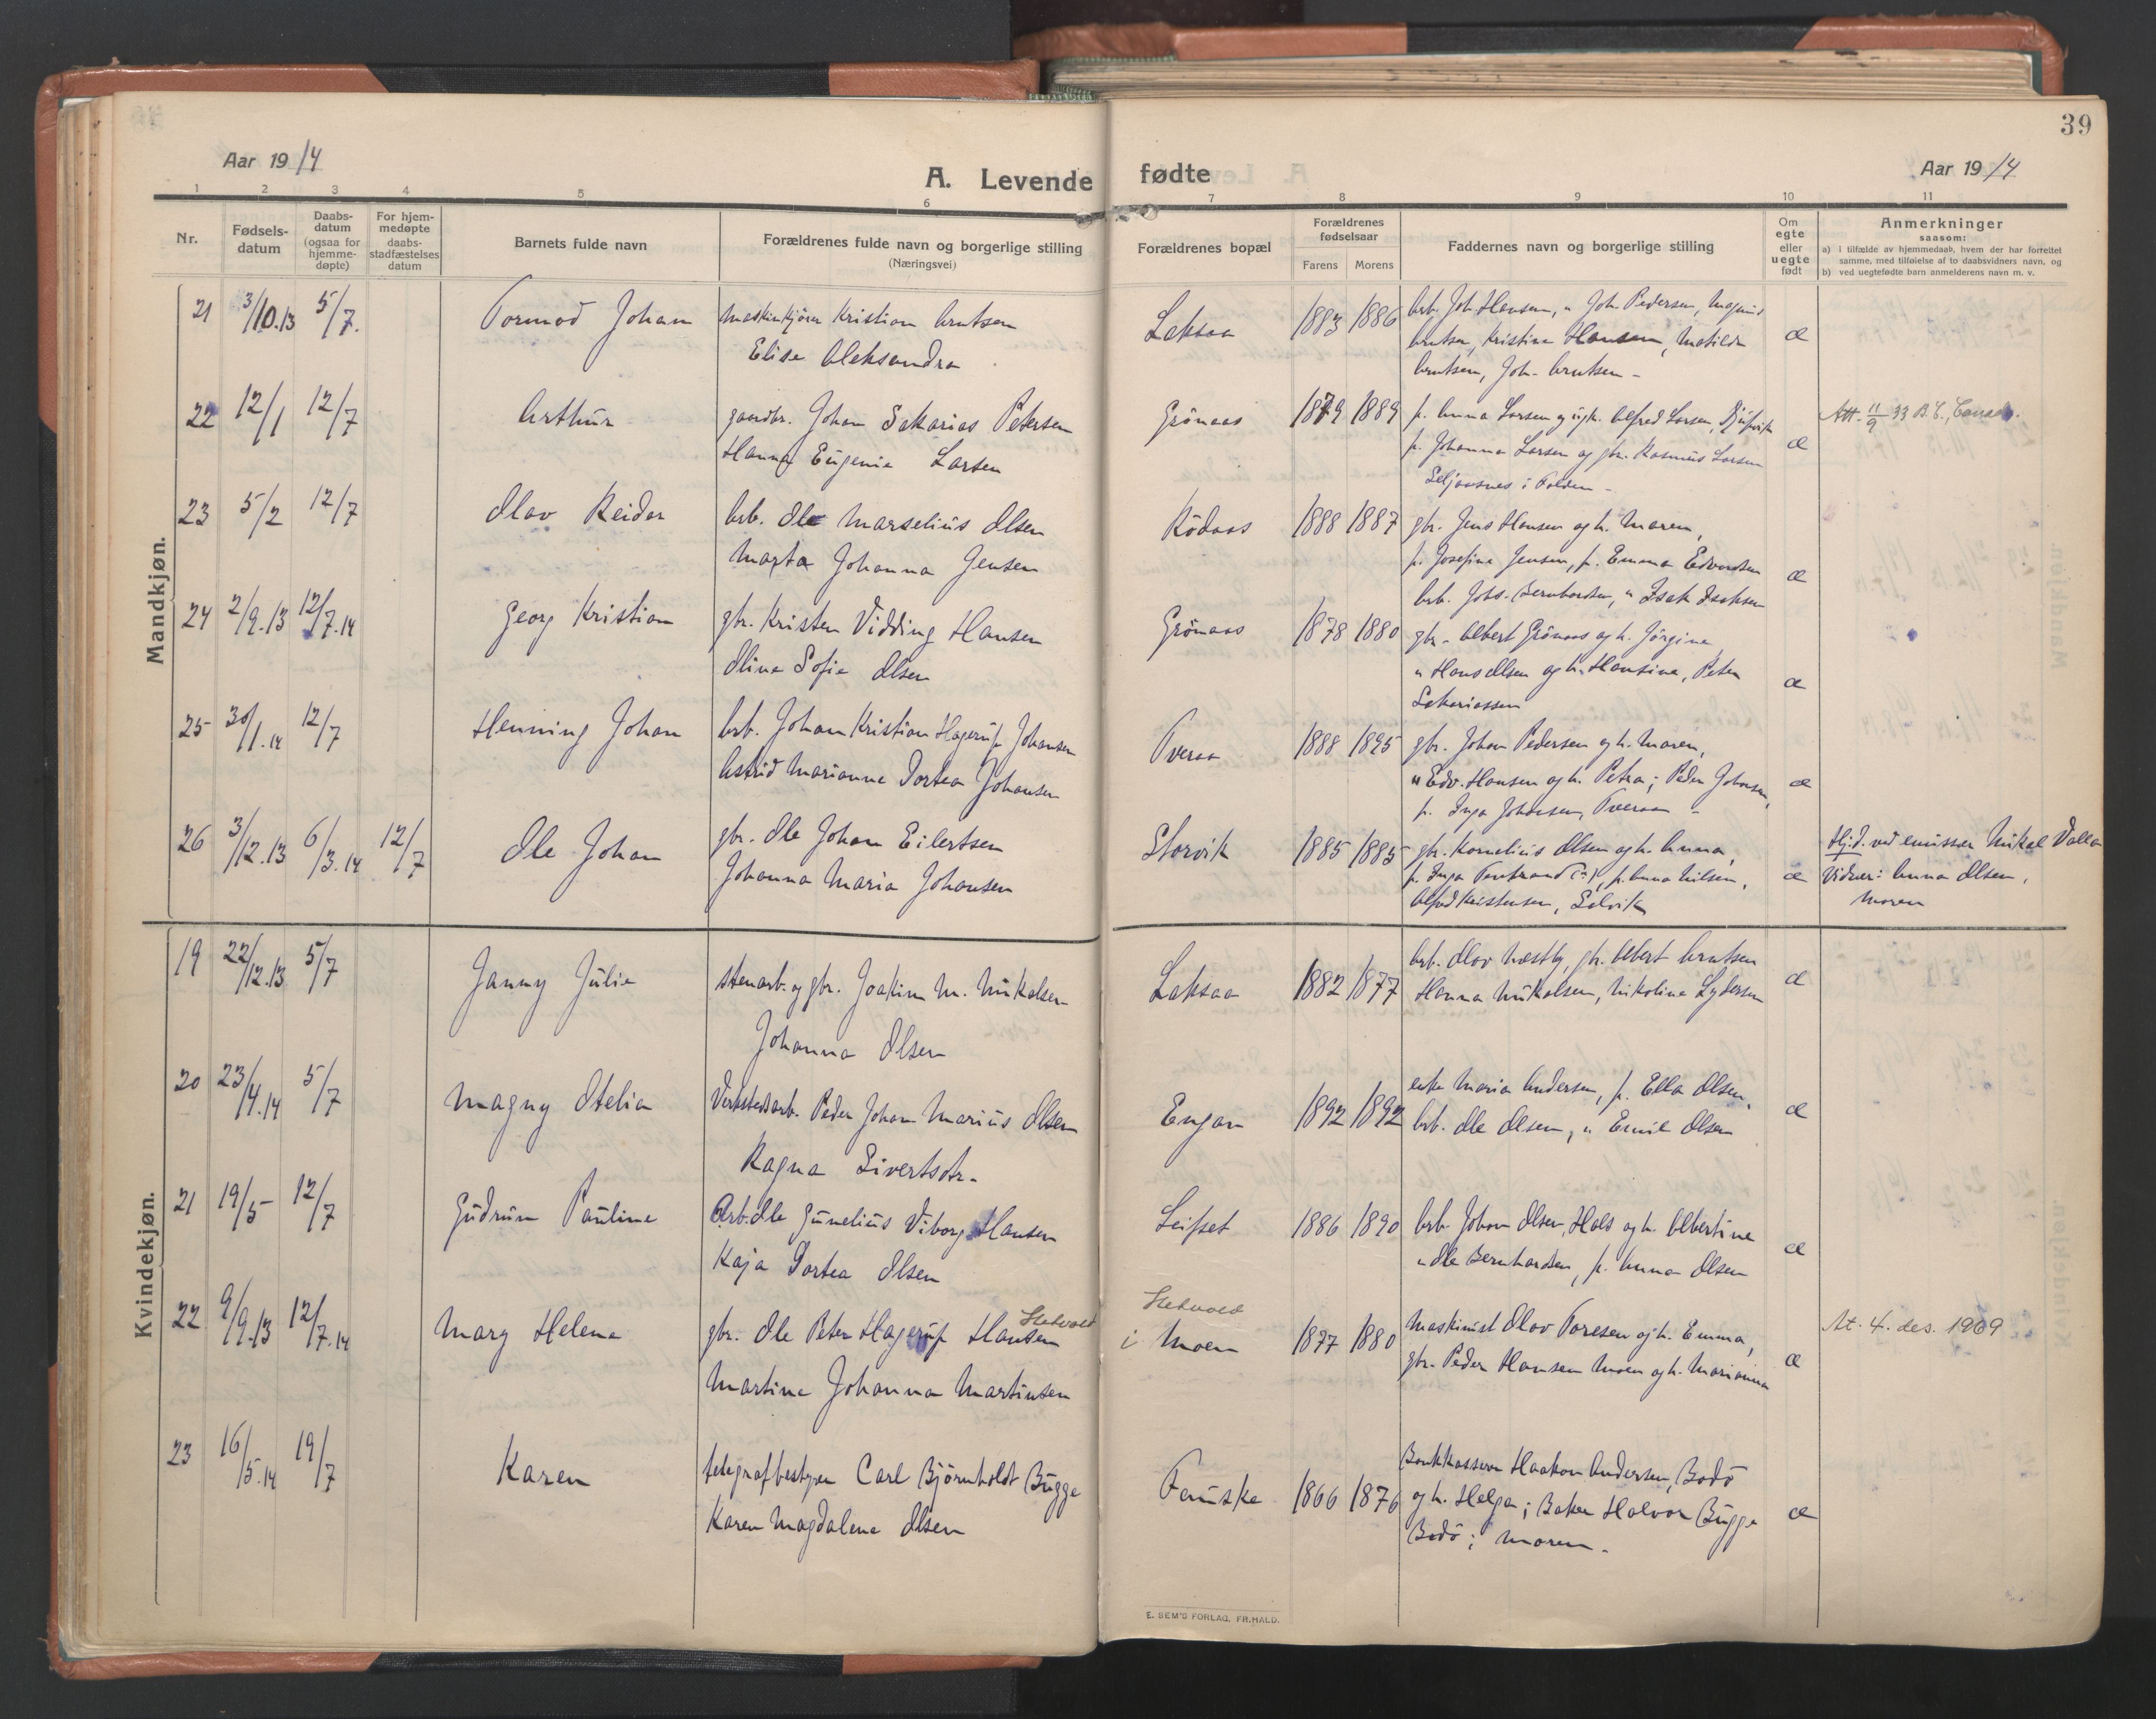 39
Aar 1914
A. Levende fødte
Aar 1914
1 2 3 4 5 6 7 8 9 10 11
Nr.
Fødsels-
datum
Daabs-
datum
(ogsaa for
hjemme-
døpte)
For hjem-
medøpte
daabs-
stadfæstelses
datum
Barnets fulde navn
Forældrenes fulde navn og borgerlige stilling
(Næringsvei)
Forældrenes bopæl
Forældrenes
fødselsaar
Farens Morens
Faddernes navn og borgerlige stilling
Om
egte
eller
uegte
født
Anmerkninger
saasom:
a) i tilfælde av hjemmedaab, hvem der har forrettet
samme, med tilføielse af to daabsvidners navn, og
b) ved uegtefødte barn anmelderens navn m. v.
Mandkjøn.
21 3/10.13 5/7. Tormod Johan maskinkjører Kristian Arntsen Laksaa 1883 1886 arb. Joh. Hansen, " Joh. Pedersen, Magnus
Elise Aleksandra Arntsen, Kristine Hansen, Matilde æ
Arntsen, Joh. Arntsen -
22 12/1 12/7 Arthur gaardbr. Johan Sakarias Petersen Grönaas 1879 1889 p. Anna Larsen og ugk. Alfred Larsen, Att. 11/9 33 B.C.
Hanna Eugenie Larsen p. Johanna Larsen og gbr. Rasmus Larsen æ
i Folden -
23 5/2 12/7 Olav Reidar arb. Ole Marselius Olsen Rödaas 1888 1887 gbr. Jens Hansen og h. Maren,
Marta Johanna Jensen p. Josefine Jensen, p. Emma Edvardsen æ
arb. Johs. Bernhardsen, " Isak Isaksen
24 2/9.13 12/7.14 Georg Kristian gbr. Kristen Vidding Hansen Grönaas 1878 1880 gbr. Albert Grönaas og h. Jörgine,
Oline Sofie Olsen " Hans Olsen og h. Hansine, Peter æ
Sakariassen
25 30/1.14 12/7 Henning Johan arb. Johan Kristian Hagerup Johansen Tveraa 1888 1895 gbr. Johan Pedersen og h. Maren,
Astrid Marianne Dortea Johansen " Edv. Hansen og h. Petra; Peder Johansen, æ
p. Inga Johansen, Tveraa -
26 3/12.13 6/3.14 12/7 Ole Johan gbr. Ole Johan Eilertsen Storvik 1885 1885 gbr. Kornelius Olsen og h. Anna, Hj.d. ved emissær Mikal Valla
Johanna Maria Johansen p. Inga (?), p. Anna Nilsen, æ Vidner: Anna Olsen,
Alfred Kristensen, Selvik Moren
Kvindekjøn.
19 22/12.13 5/7 Janny Julie stenarb. og gbr. Joakim M. Mikalsen Laksaa 1882 1877 arb. Olav Næstby, gbr. Albert Arntsen æ
Johanna Olsen Hanna Mikalsen, Nikoline Lydersen
20 23/4.14 5/7 Magny Otelia Verkstedsarb. Peder Johan Marius Olsen Engan 1892 1892 enke Maria Andersen, p. Ella Olsen, æ
Ragna Sivertsdtr. arb. Ole Olsen, " Emil Olsen
21 19/5 12/7 Gudrun Pauline Arb. Ole Gunelius Viborg Hansen Leifset 1886 1890 Arb. Johan Olsen, Hals og h. Albertine
Kaja Dortea Olsen " Ole Bernhardsen, p. Anna Olsen æ
22 9/9.13 12/7.14 Mary Helene gbr. Ole Peter Hagerup Hansen i Moen 1877 1880 Maskinist Olav Toresen og h. Emma, At. 4. des. 1969
Martine Johanna Martinsen gbr. Peder Hansen Moen og h. Marianna æ
23 16/5.14 19/7 Karen telegrafbestyrer Carl Björnholdt Bugge Fauske 1866 1876 Bankkasserer Haakon Andersen, Bodö
Karen Magdalene Olsen og h. Helga; Baker Halvor Bugge æ
Bodö; moren -
E. SEM'S FORLAG, FR.HALD.